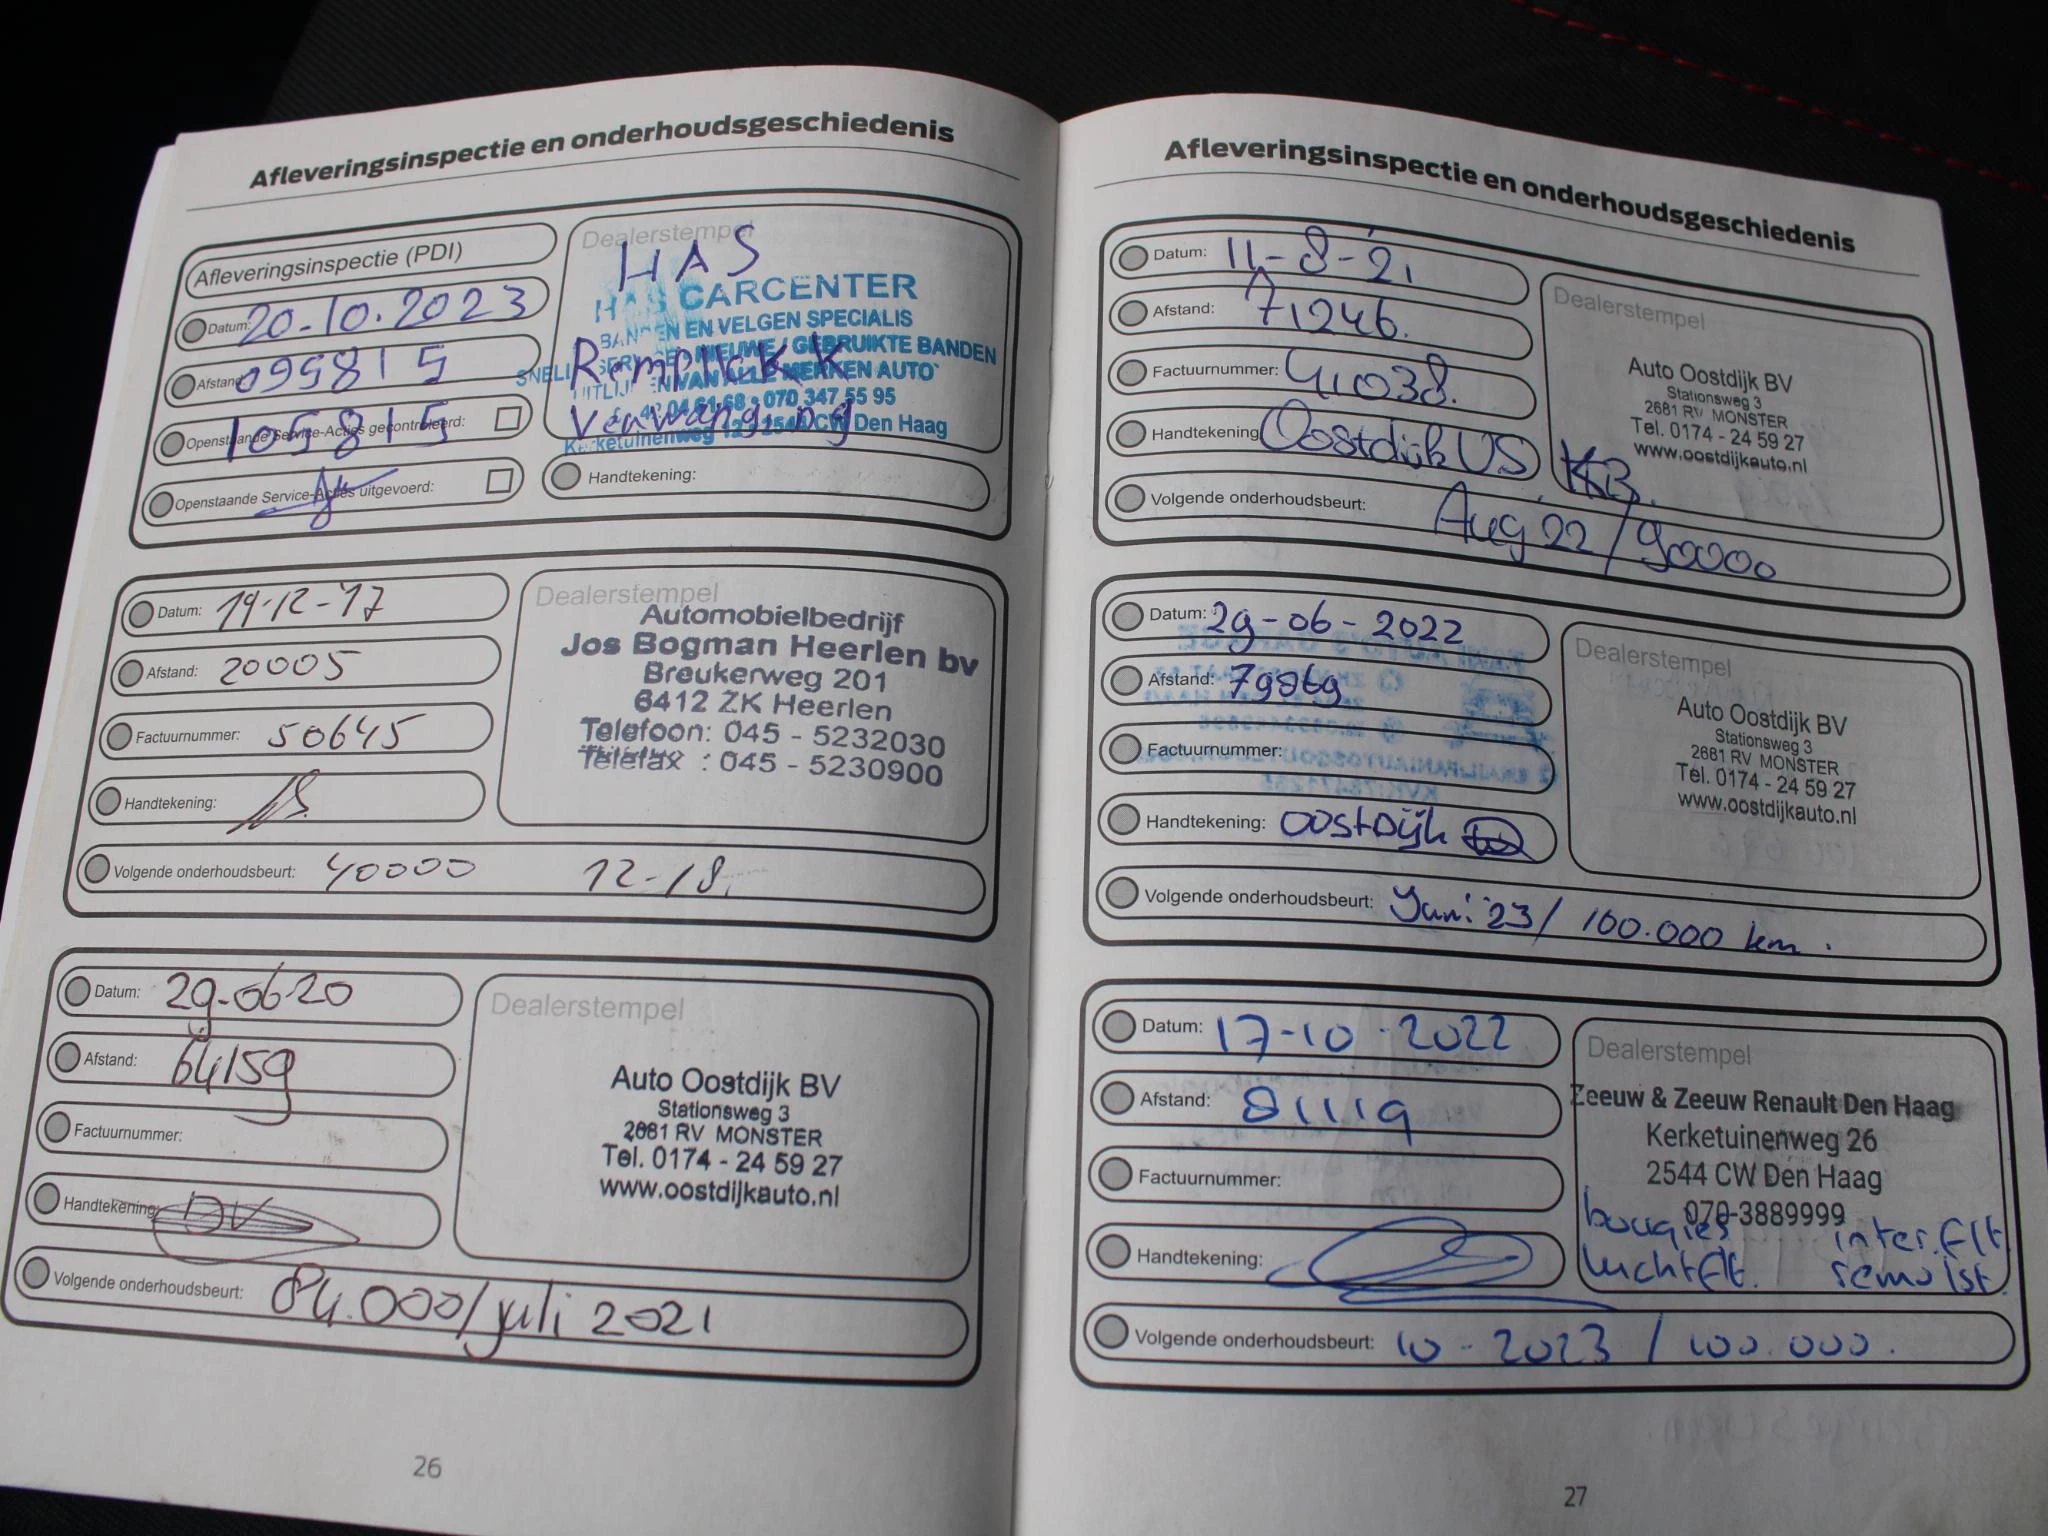 Afleveringsinspectie en onderhoudsgeschiedenis
Afleveringsinspectie (PDI)
Datum: 20-10.2023
Afstand: 095815
105815
Openstaande Service-Acties gecontroleerd:
Openstaande Service-Acties uitgevoerd:
Dealerstempel
HAS
HAS CARCENTER
BANDEN EN VELGEN SPECIALIS
NIEUWE / GEBRUIKTE BANDEN
VAN ALLE MERKEN AUTO'
070 347 55 95
2544 CW Den Haag
Handtekening:
Datum: 19-12-'17
Afstand: 20005
Factuurnummer: 50645
Handtekening:
Volgende onderhoudsbeurt: 40000 12-18.
Dealerstempel
Automobielbedrijf
Jos Bogman Heerlen bv
Breukerweg 201
6412 ZK Heerlen
Telefoon: 045 - 5232030
Telefax : 045 - 5230900
Datum: 29-06-20
Afstand: 64159
Factuurnummer:
Handtekening: DV
Volgende onderhoudsbeurt: 84.000/juli 2021
Dealerstempel
Auto Oostdijk BV
Stationsweg 3
2681 RV MONSTER
Tel. 0174 - 24 59 27
www.oostdijkauto.nl
26
Afleveringsinspectie en onderhoudsgeschiedenis
Datum: 11-8-21
Afstand: 71246.
Factuurnummer: 41038.
Handtekening: Oostdijk VS KB.
Volgende onderhoudsbeurt: Aug 22 / 90000
Dealerstempel
Auto Oostdijk BV
Stationsweg 3
2681 RV MONSTER
Tel. 0174 - 24 59 27
www.oostdijkauto.nl
Datum: 29-06-2022
Afstand:
Factuurnummer:
Handtekening: Oostdijk
Volgende onderhoudsbeurt: Juni '23 / 100.000 km.
Dealerstempel
Auto Oostdijk BV
Stationsweg 3
2681 RV MONSTER
Tel. 0174 - 24 59 27
www.oostdijkauto.nl
Datum: 17-10-2022
Afstand: 81119
Factuurnummer:
Handtekening:
Volgende onderhoudsbeurt: 10-2023 / 100.000.
Dealerstempel
Zeeuw & Zeeuw Renault Den Haag
Kerketuinenweg 26
2544 CW Den Haag
070-3889999
bougies inter.flt.
luchtflt. remvlst.
27